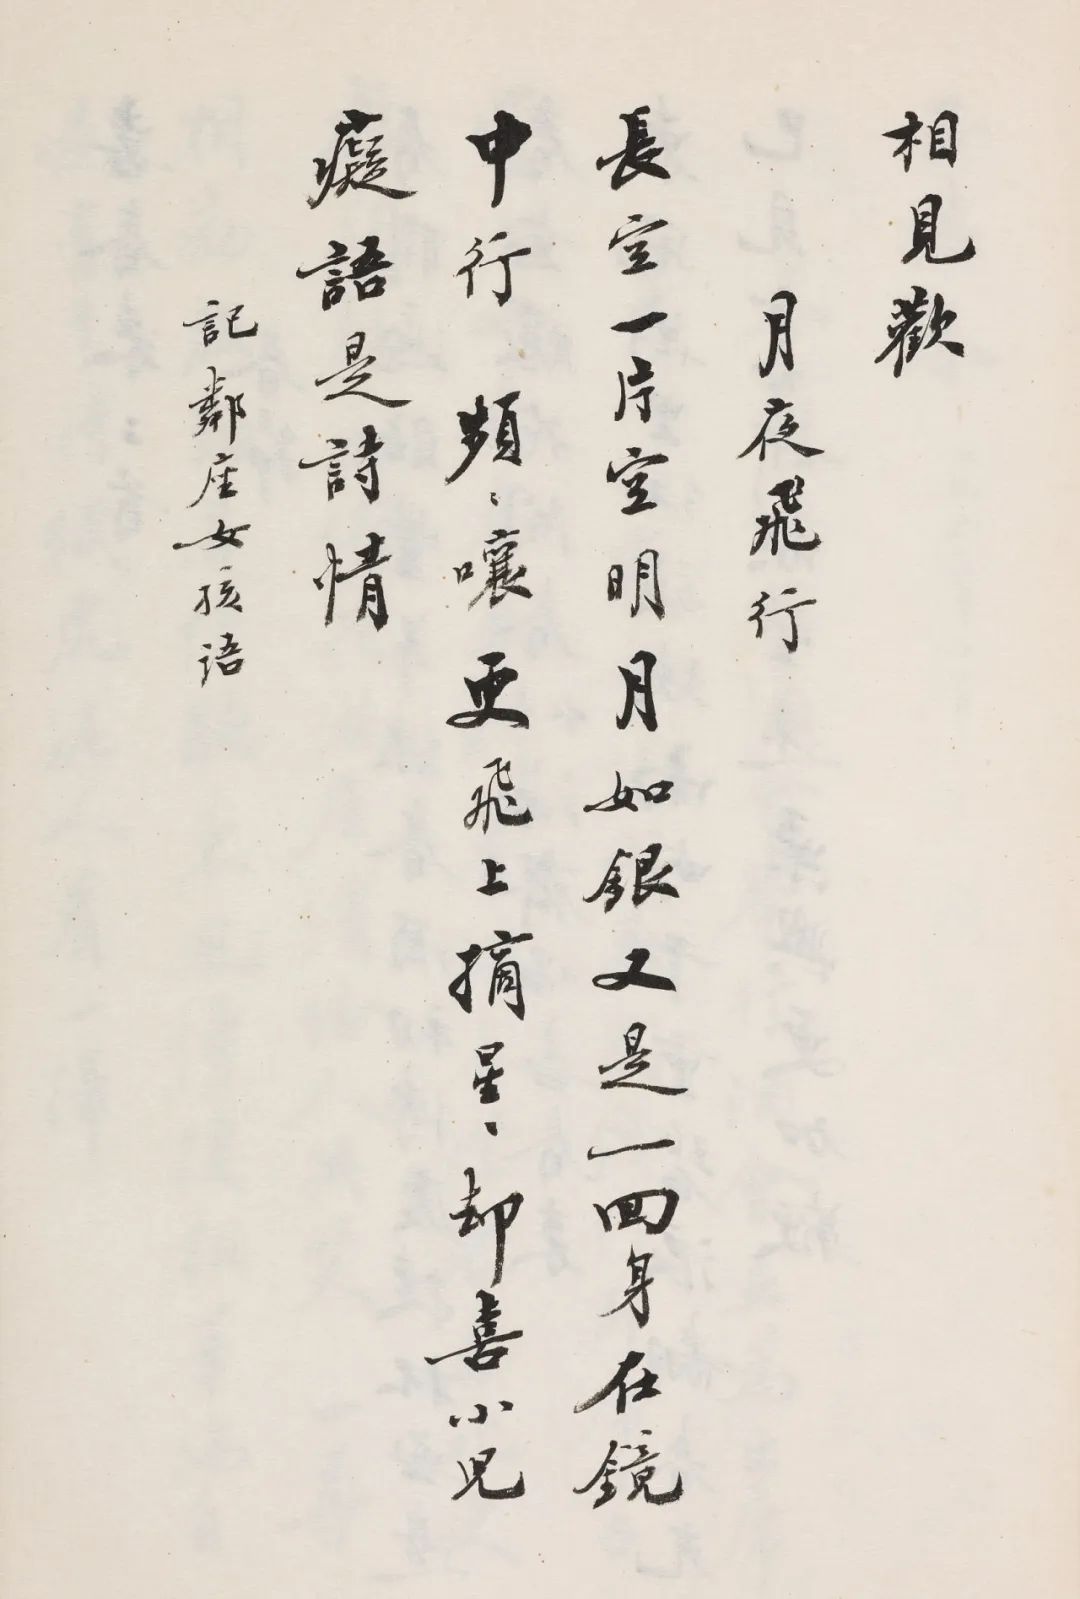 相見歡
月夜飛行
長空一片空明月如銀又是一回身在鏡
中行 頻〻嚷更飛上摘星〻却喜小児
癡語是詩情
記鄰座女孩语